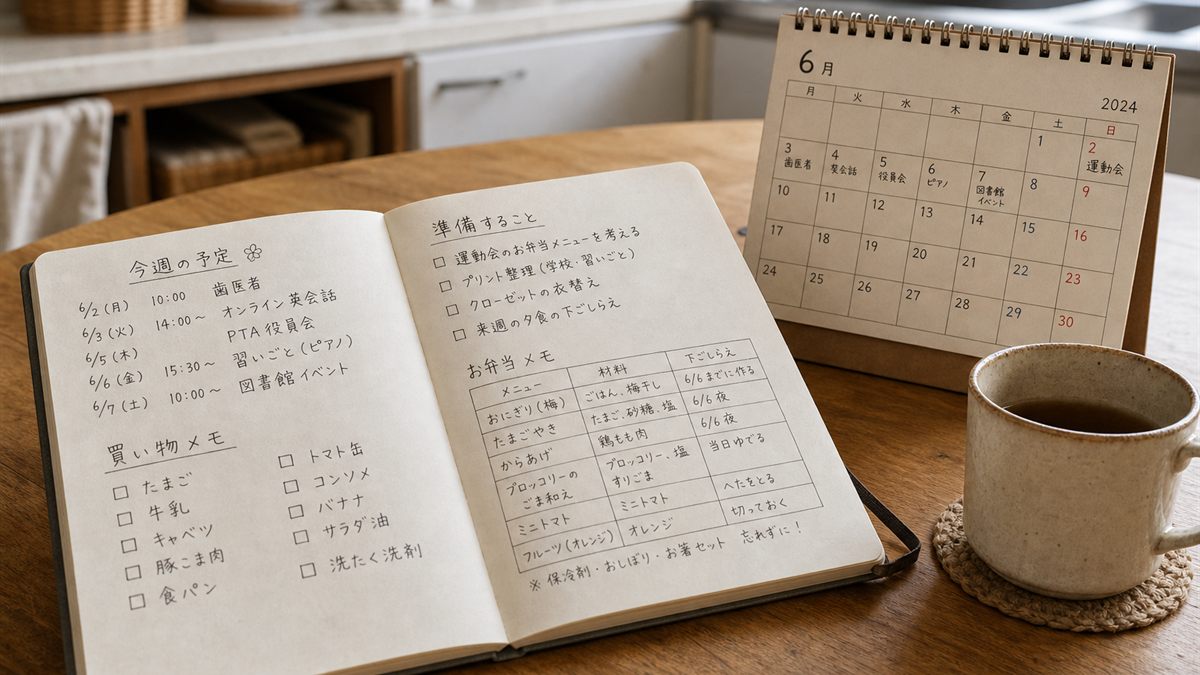 今週の予定
6/2(月) 10:00 歯医者
6/3(火) 14:00～ オンライン英会話
6/5(木) PTA 役員会
6/6(金) 15:30～ 習いごと(ピアノ)
6/7(土) 10:00～ 図書館イベント
買い物メモ
□ たまご
□ 牛乳
□ キャベツ
□ 豚こま肉
□ 食パン
□ トマト缶
□ コンソメ
□ バナナ
□ サラダ油
□ 洗たく洗剤
準備すること
□ 運動会のお弁当メニューを考える
□ プリント整理(学校・習いごと)
□ クローゼットの衣替え
□ 来週の夕食の下ごしらえ
お弁当メモ
メニュー 材料 下ごしらえ
おにぎり(梅) ごはん、梅干し 6/6までに作る
たまごやき たまご、砂糖、塩 6/6 夜
からあげ 鶏もも肉 6/6 夜
ブロッコリーの ブロッコリー、塩 当日ゆでる
ごま和え すりごま
ミニトマト ミニトマト へたをとる
フルーツ(オレンジ) オレンジ 切っておく
※ 保冷剤・おしぼり・お箸セット 忘れずに！
6月
2024
月 火 水 木 金 土 日
1 2
運動会
3 4 5 6 7 8 9
歯医者 英会話 役員会 ピアノ 図書館
イベント
10 11 12 13 14 15 16
17 18 19 20 21 22 23
24 25 26 27 28 29 30